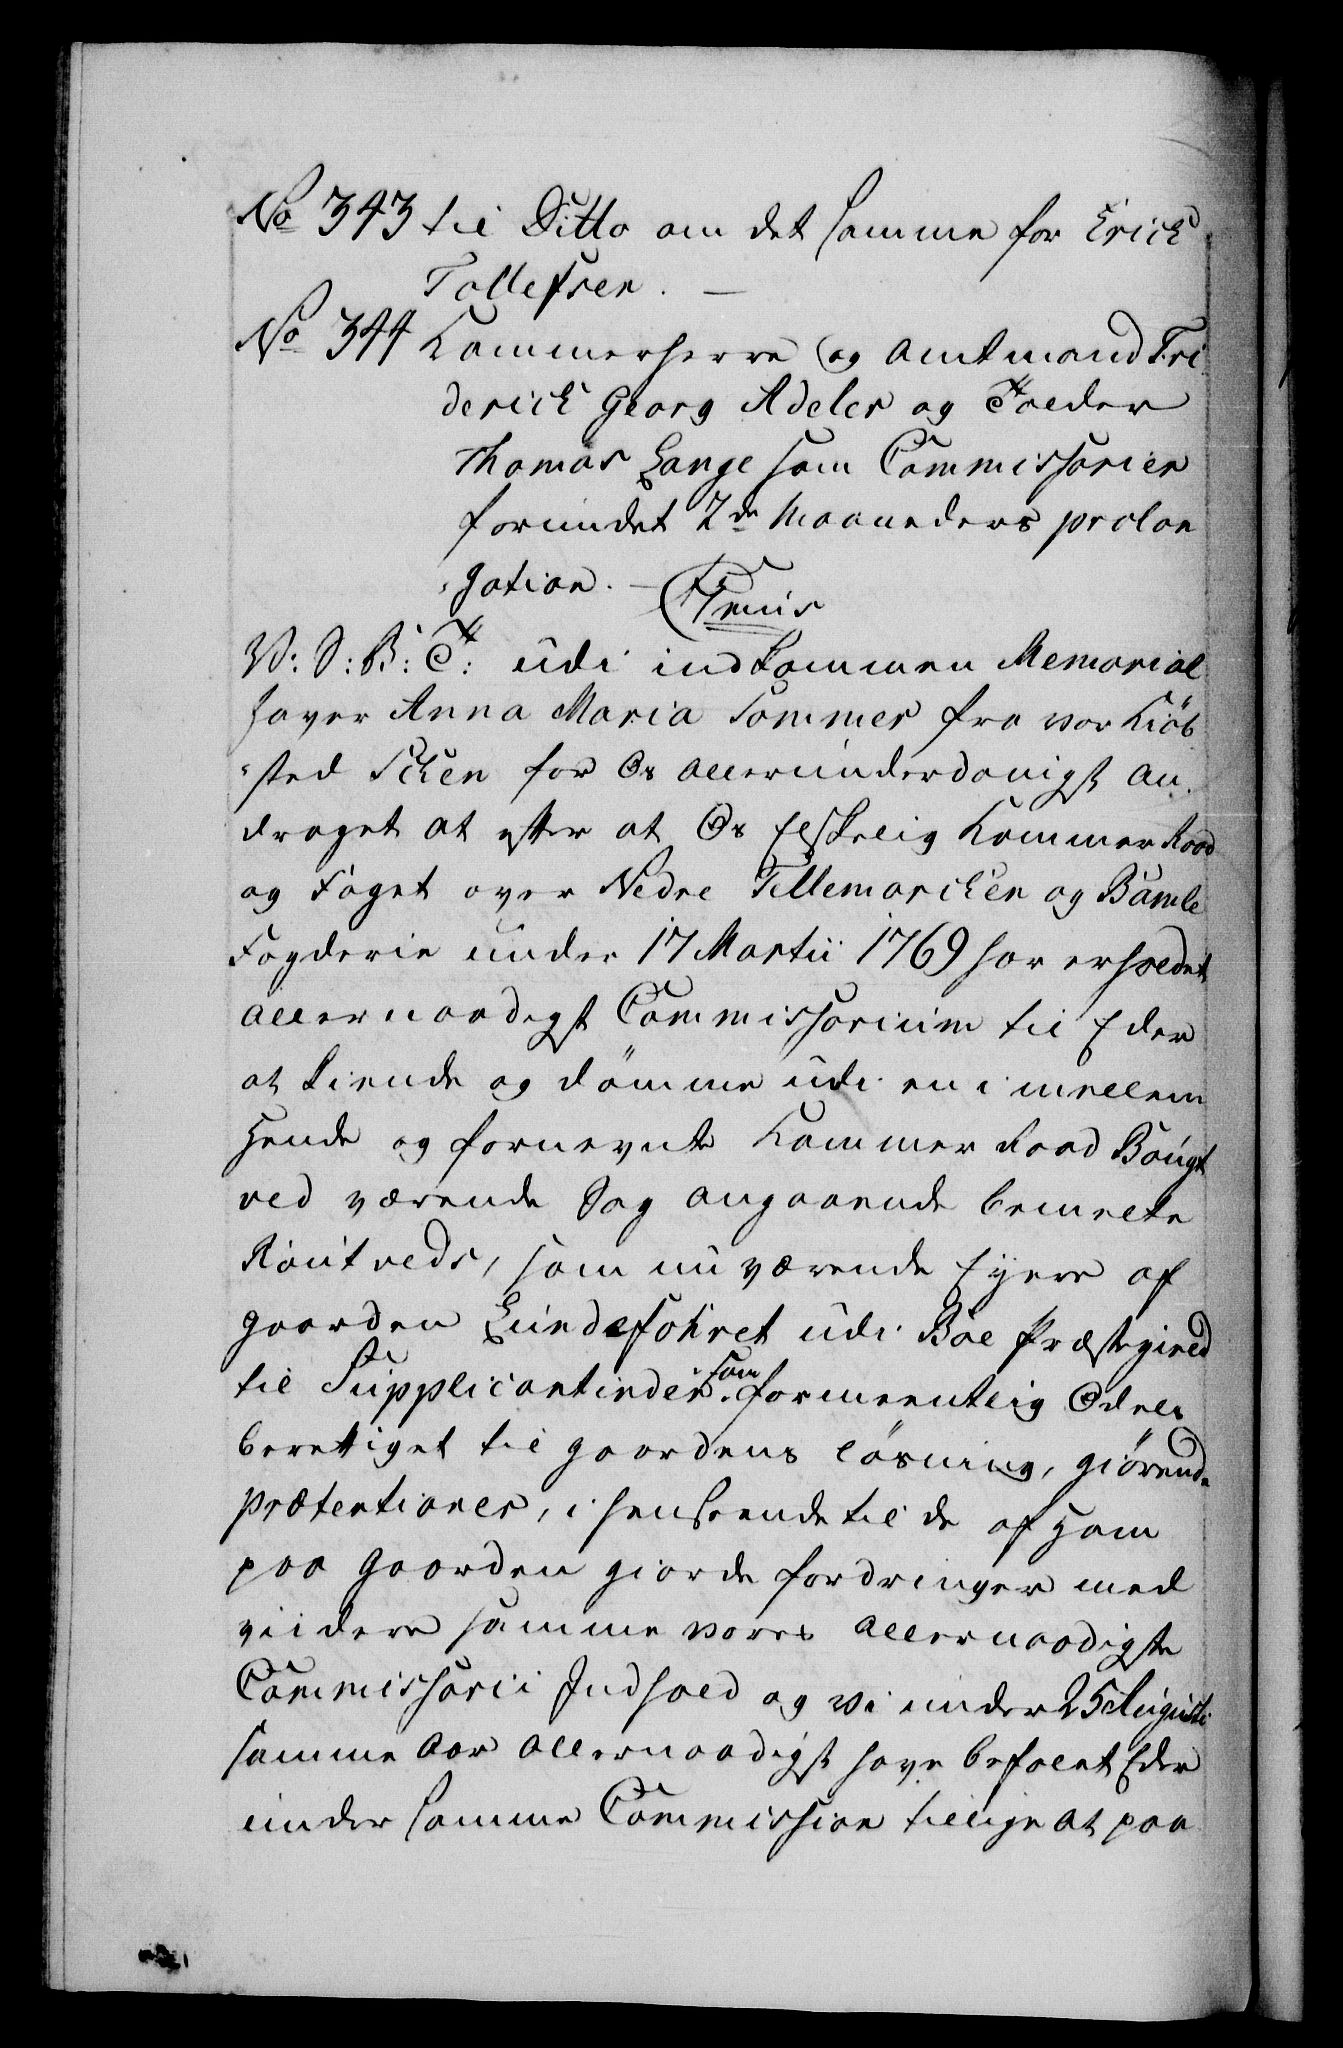 No 343 til Ditto om det samme for Erich
Tollefsen. —
No 344 Kammerherre og Amtmand Fri
derich Georg Adeler og Peder
Thomas Lange som Commissarier
forundet 2de Maaneders prolon
gation. —
V: S: B: T: udi indkommen Memorial
haver Anna Maria Sommer fra vor Kiöb
sted Scheen for Os allerunderdanigst an
draget at efter at Os Elskelig Kammer Raad
og Foget over Nedre Tillemarchen og Bamle
Fogderie under 17 Martii 1769 har erholdet
allernaadigst Commissorium til Eder
at kiende og dömme udi en imellem
Hende og fornevnte Kammer Raad Baugt
ved værende Sag angaaende bemelte
som nu værende Eyere af
gaarden Lindeſohret udi Böe Præstegield
til Supplicantinden som formeentlig Odels
berettiget til gaardens lösning, giörende
prætentioner, i henseende til de af Ham
paa Gaarden giorde fordringer med
viidere samme vores allernaadigste
Commissorii Indhold og vi under 25 Augusti
samme Aar allernaadigst have befalet Eder
under samme Commission tillige at paa